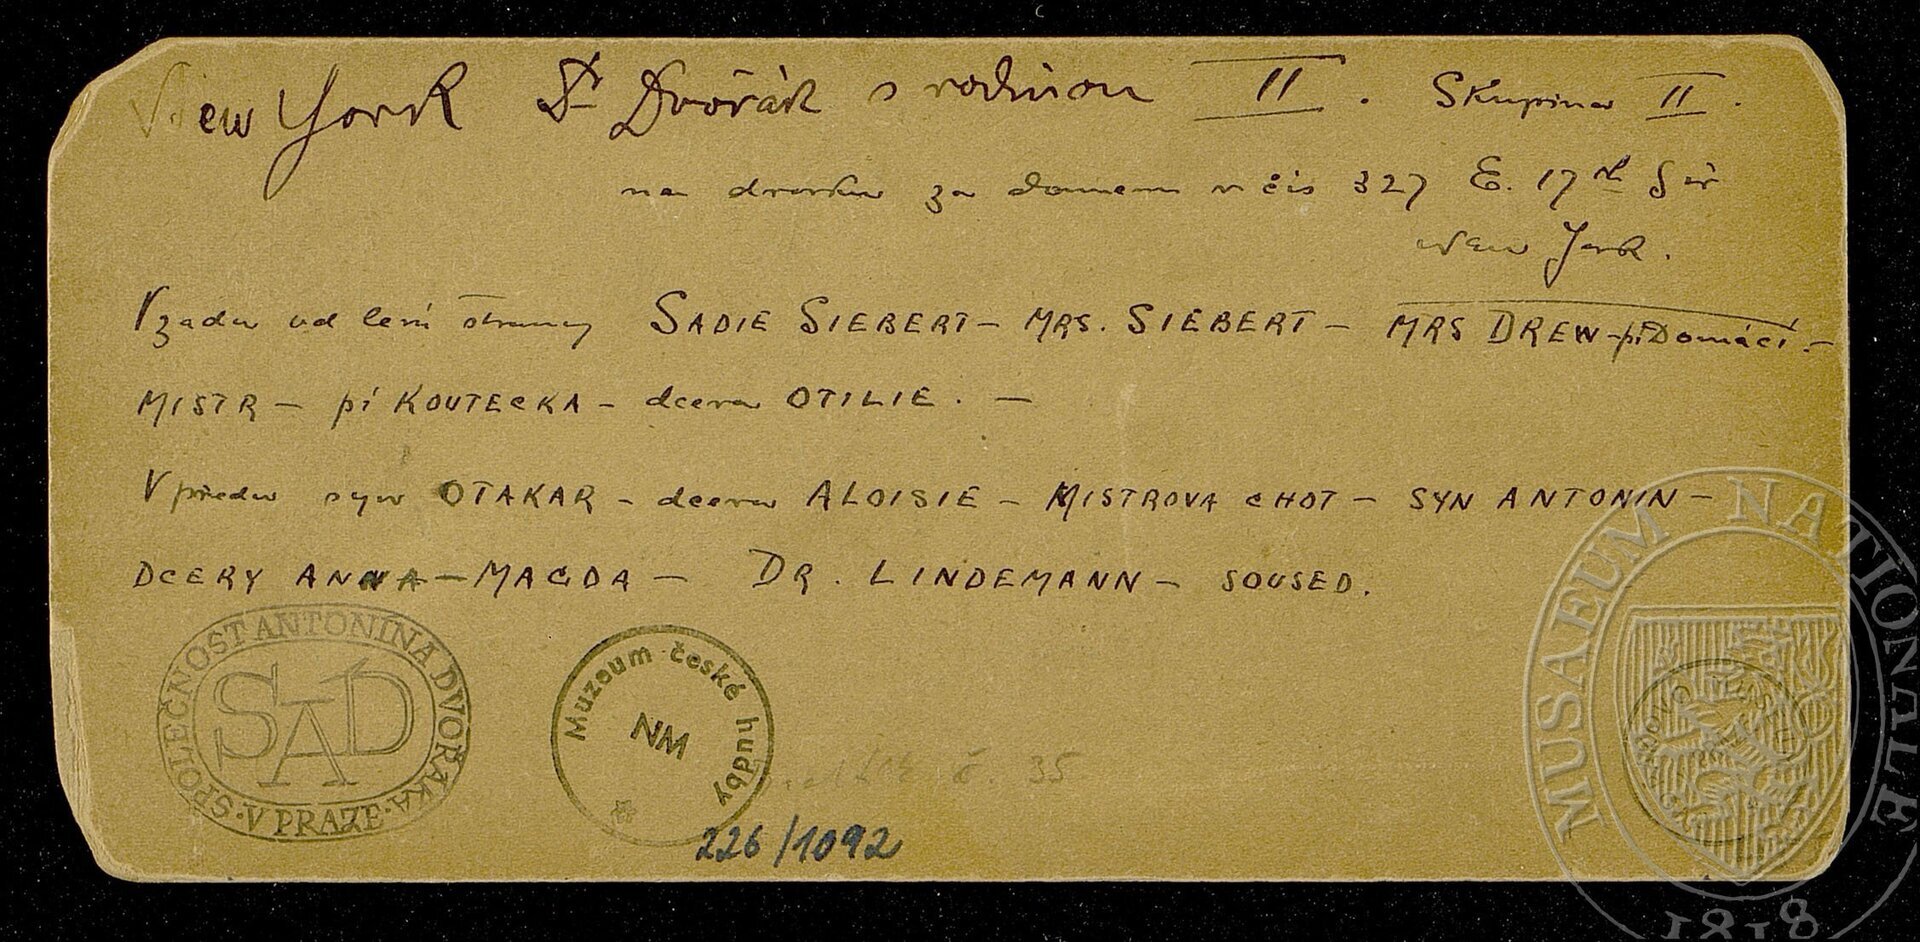 New York Dr Dvořák s rodinou II. Skupina II.
na dvorku za domem v čís 327 E. 17th Str
New York.
Vzadu od levé strany SADIE SIEBERT – MRS. SIEBERT – MRS DREW – pí Domácí. –
MISTR – pí KOUTECKA – dcera OTILIE. –
V předu syn OTAKAR – dcera ALOISIE – MISTROVA CHOT – SYN ANTONIN –
DCERY ANNA – MAGDA – DR. LINDEMANN – SOUSED.
SPOLEČNOST ANTONINA DVOŘÁKA · V PRAZE ·
SAD
Muzeum české hudby
NM
č. 35
226/1092
MUSAEUM NATIONALE
1818